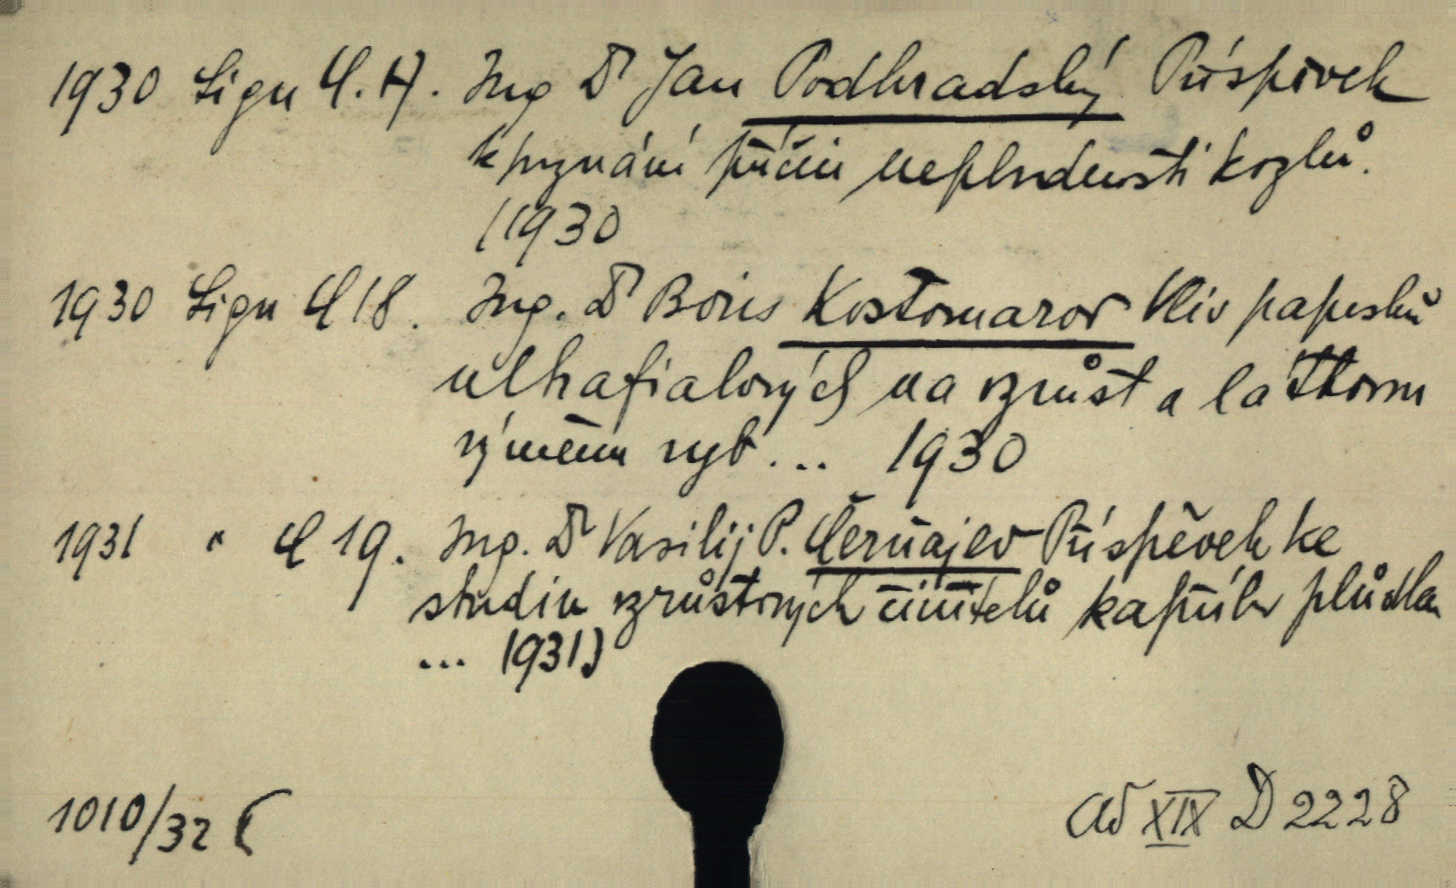 1930 Sign Č. 17. Ing Dr Jan Podhradský Příspěvek
k poznání příčin neplodnosti kozlů.
(1930
1930 Sign Č 18. Ing. Dr Boris Kostomarov Vliv paprsků
ultrafialových na vzrůst a látkovou
výměnu ryb ... 1930
1931 " Č 19. Ing. Dr Vasilij P. Čerňajev Příspěvek ke
studiu vzrůstových činitelů kapřího plůdku
... 1931)
1010/32
Ad XIX D 2228